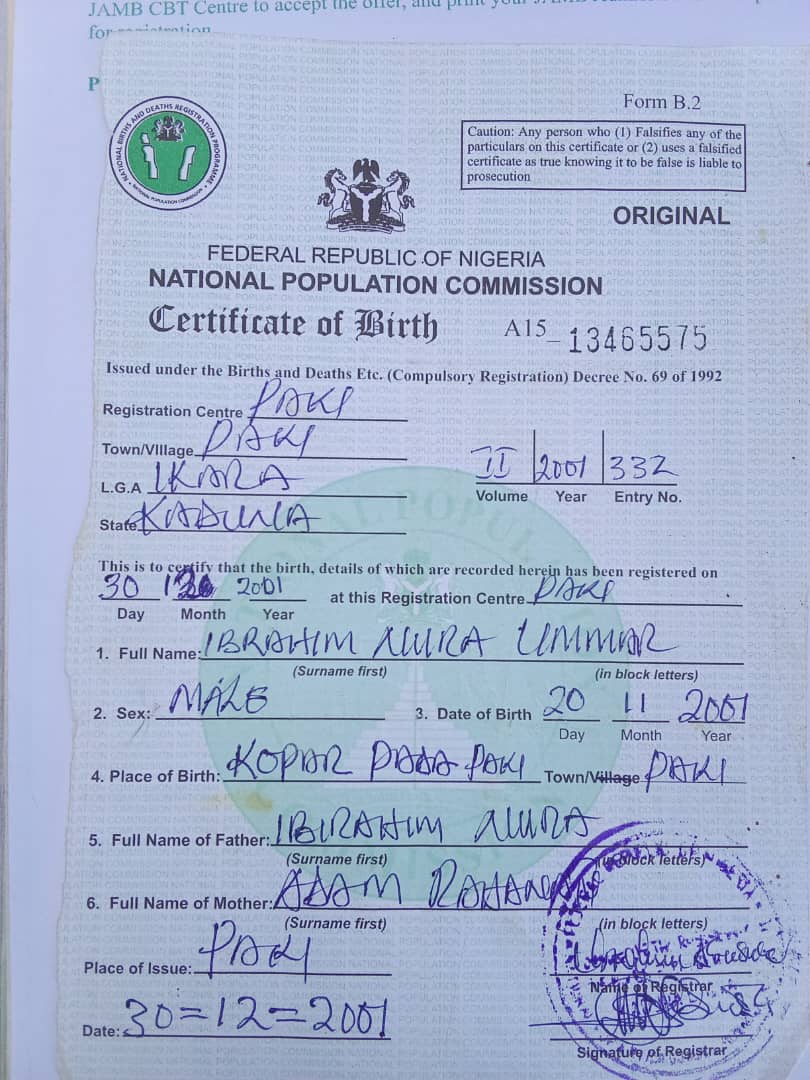 JAMB CBT Centre to accept the offer, and print your
for registration
P
Form B.2
NATIONAL BIRTHS AND DEATHS REGISTRATION PROGRAMME
NATIONAL POPULATION COMMISSION
Caution: Any person who (1) Falsifies any of the
particulars on this certificate or (2) uses a falsified
certificate as true knowing it to be false is liable to
prosecution
ORIGINAL
FEDERAL REPUBLIC OF NIGERIA
NATIONAL POPULATION COMMISSION
Certificate of Birth A15 13465575
Issued under the Births and Deaths Etc. (Compulsory Registration) Decree No. 69 of 1992
Registration Centre PAKI
Town/Village PAKI
L.G.A IKARA
II 2001 332
Volume Year Entry No.
State KADUNA
This is to certify that the birth, details of which are recorded herein has been registered on
30 2001 at this Registration Centre PAKI
Day Month Year
1. Full Name: IBRAHIM NURA UMMAR
(Surname first) (in block letters)
2. Sex: MALE 3. Date of Birth 20 11 2001
Day Month Year
4. Place of Birth: KOPAR PADA PAKI Town/Village PAKI
5. Full Name of Father: IBIRAHIM NURA
(Surname first) (in block letters)
6. Full Name of Mother: ADAM
(Surname first) (in block letters)
Place of Issue: PAKI
Name of Registrar
Date: 30=12=2001
Signature of Registrar